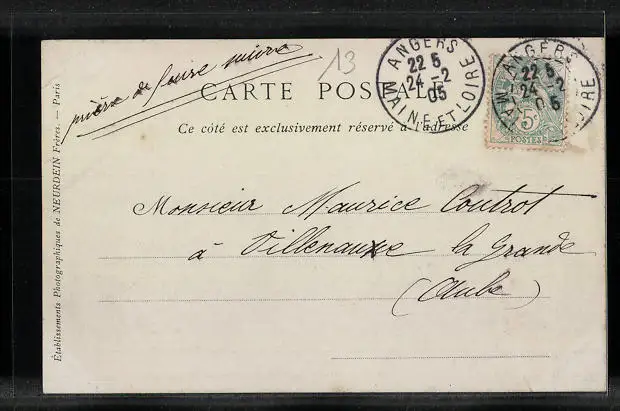 prière de faire suivre
13
CARTE POSTALE
Ce côté est exclusivement réservé à l'adresse
ANGERS
22 5
24 -2
05
MAINE ET LOIRE
ANGERS
22 5
24 -2
05
MAINE ET LOIRE
5c
POSTES
Monsieur Maurice Coutrot
à Villenauxe la Grande
(Aube)
Établissements Photographiques de NEURDEIN Frères. — Paris